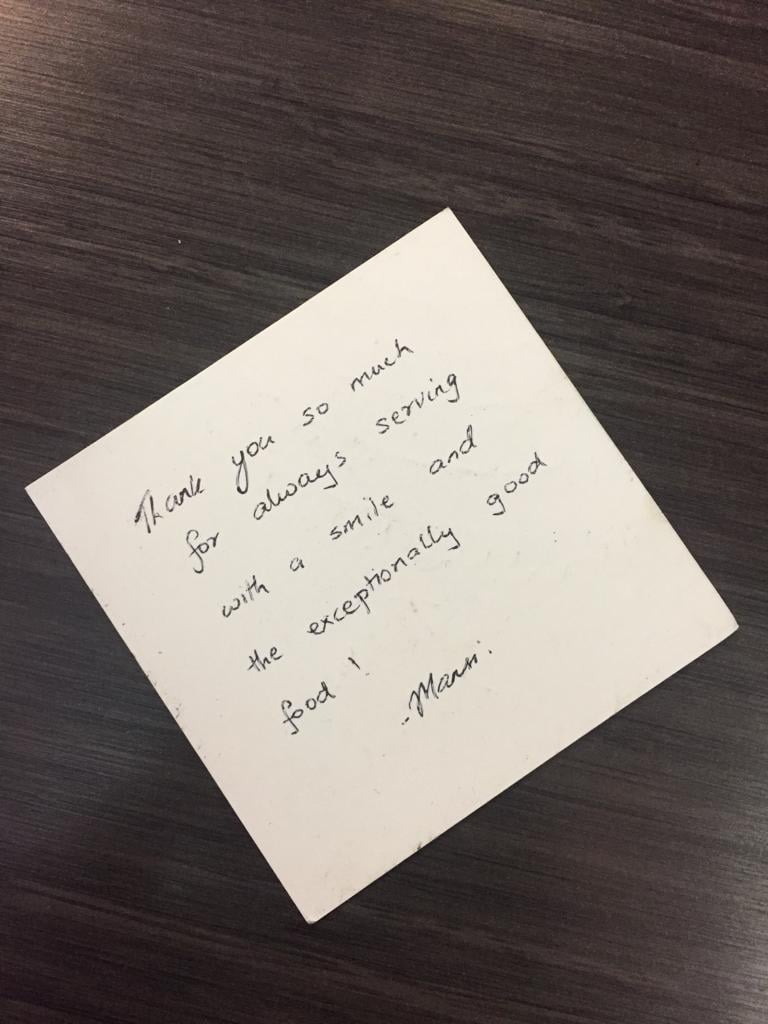 Thank you so much
for always serving
with a smile and
the exceptionally good
food !